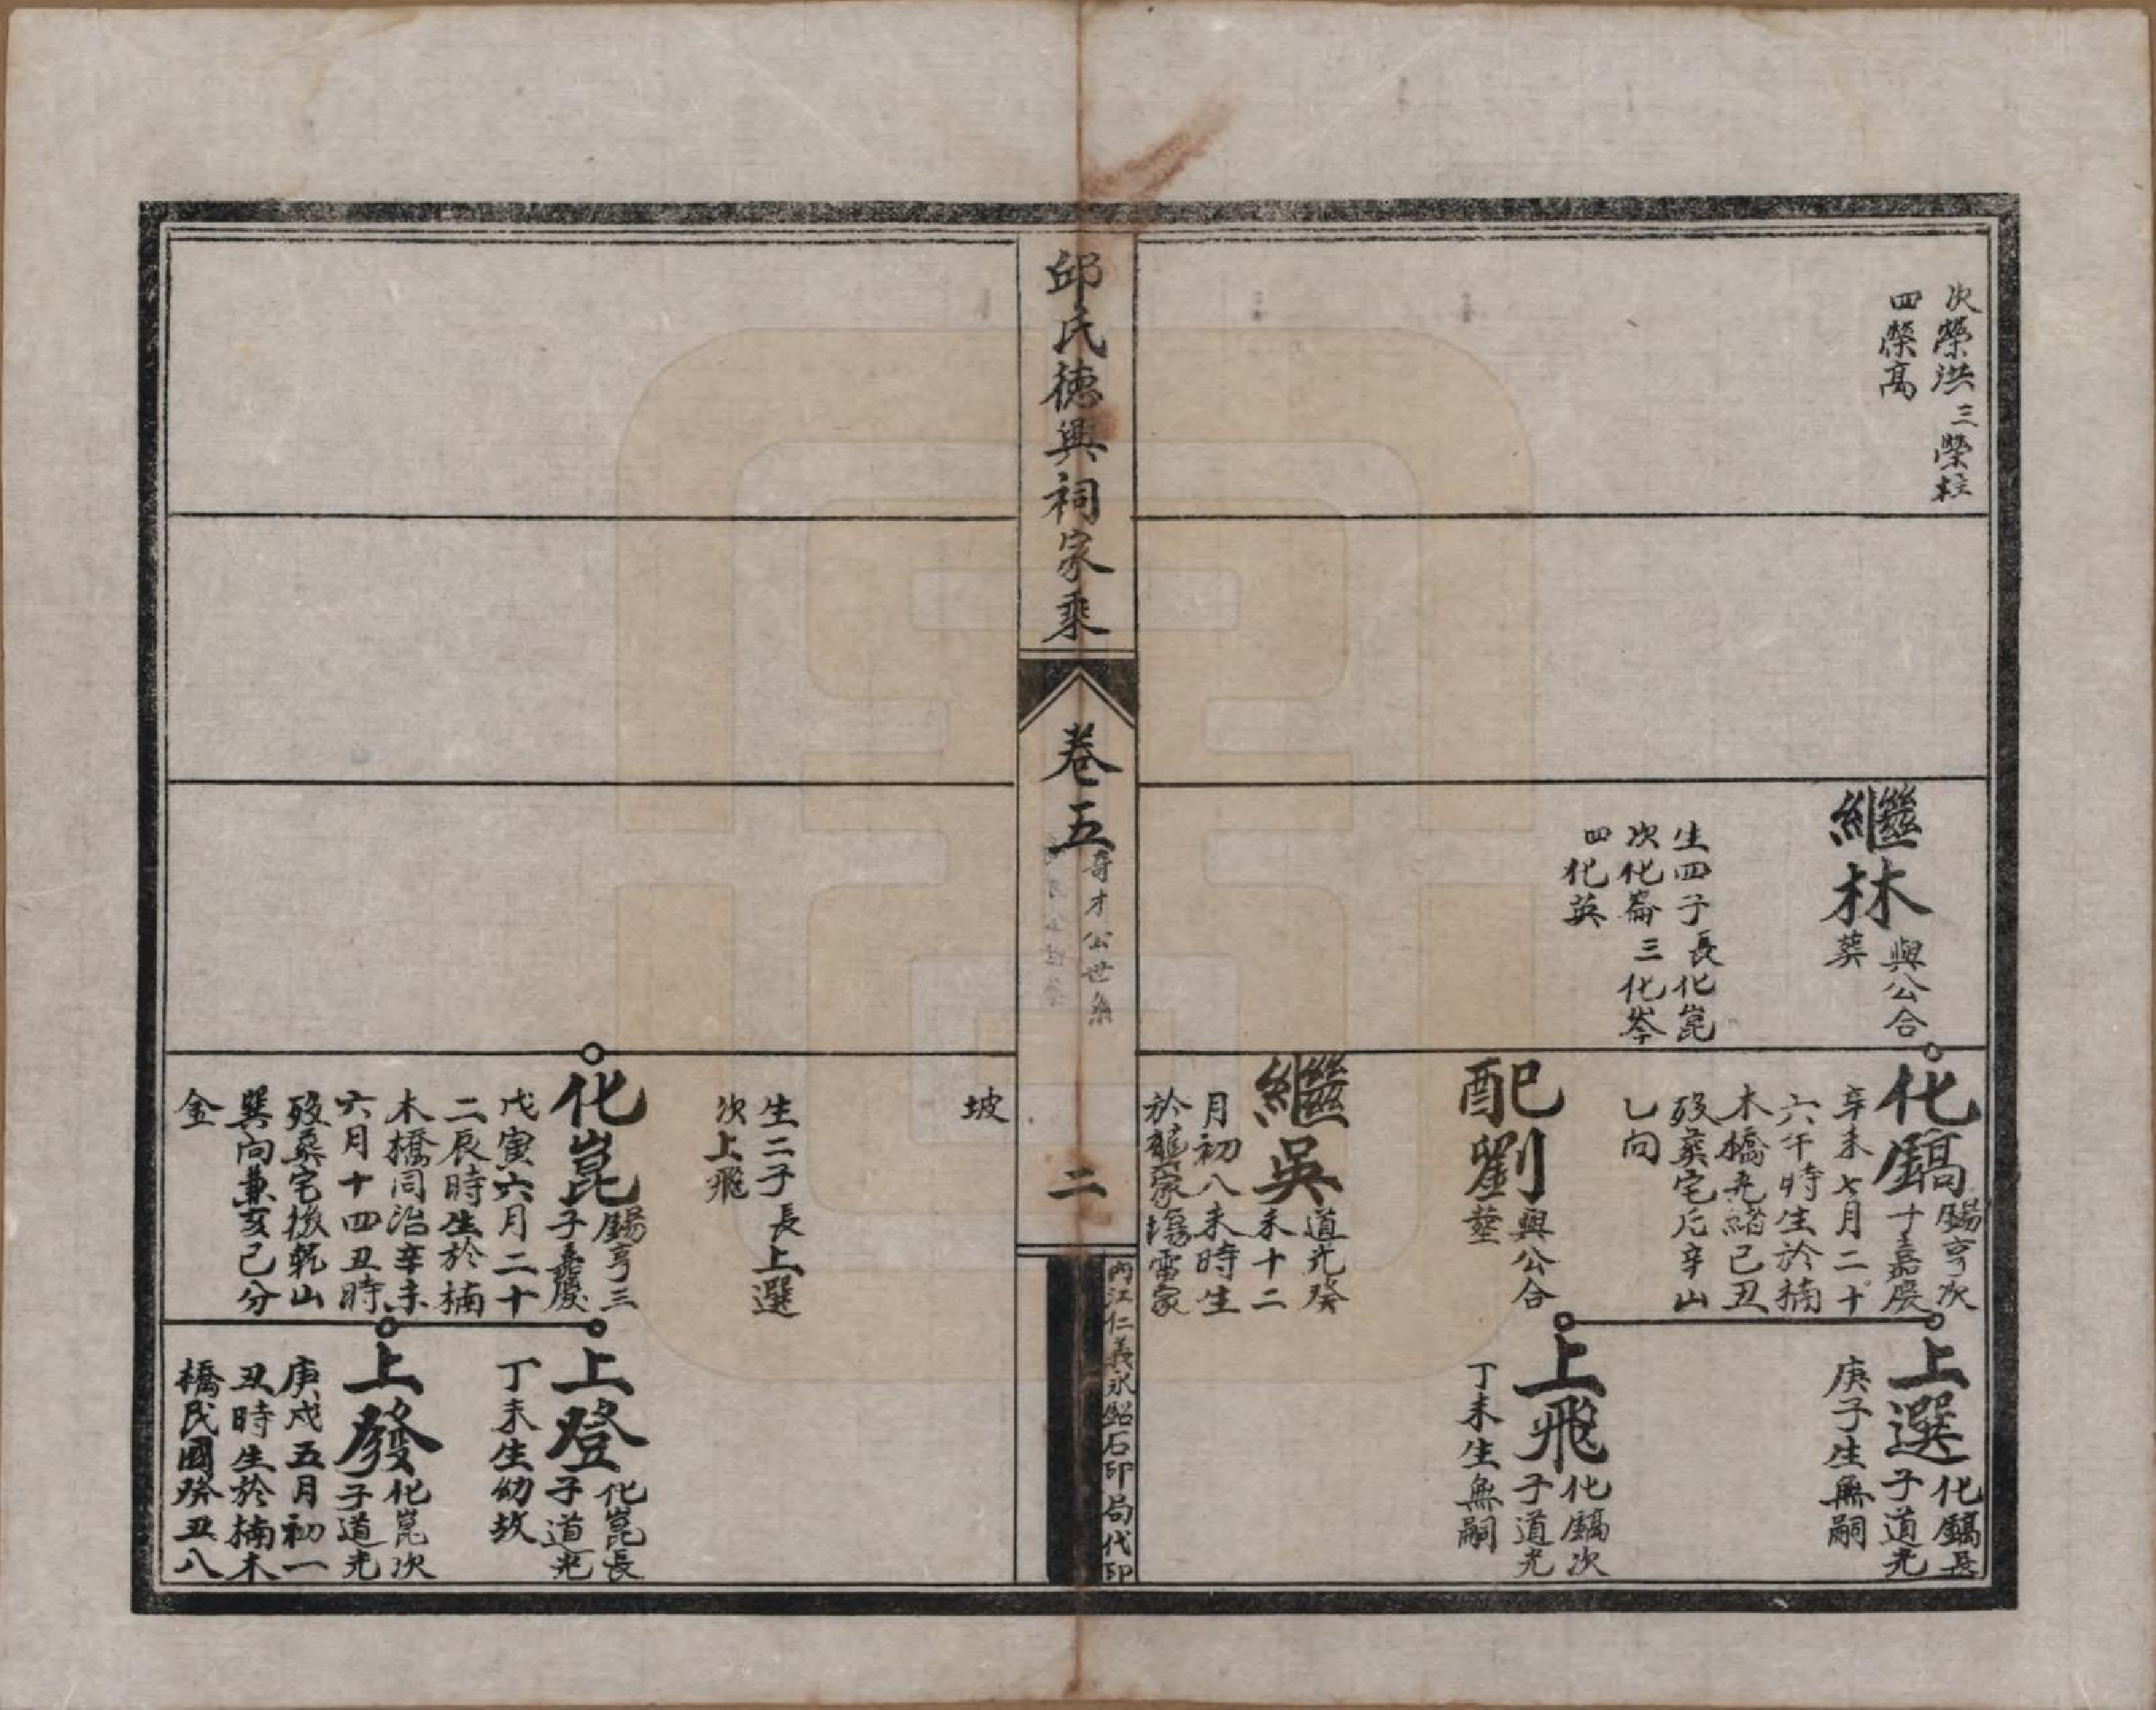 次榮洪三榮柱
四榮高
繼林與公合
葬
生四子長化崑
次化崙三化岑
四化英
化鎬錫亨次
子嘉慶
辛未七月二十
六午時生於楠
木橋光緒己丑
歿葬宅后辛山
乙向
配劉與公合
塟
繼吳道光癸
未十二
月初八未時生
於龍家塲雷家
上選化鎬長
子道光
庚子生無嗣
上飛化鎬次
子道光
丁未生無嗣
邱氏德興祠家乘
卷五
奇才公世系
二
內江仁義永紹石印局代印
坡
生二子長上選
次上飛
化崑錫亨三
子嘉慶
戊寅六月二十
二辰時生於楠
木橋同治辛未
六月十四丑時
歿葬宅後乾山
巽向兼亥己分
金
上登化崑長
子道光
丁未生幼故
上發化崑次
子道光
庚戌五月初一
丑時生於楠木
橋民國癸丑八